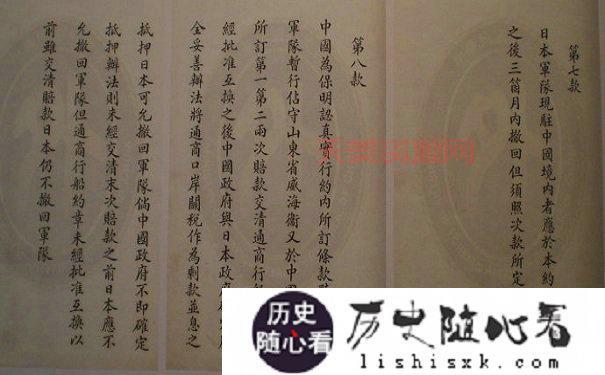 第七款
日本軍隊現駐中國境內者應於本約
之後三箇月內撤回但須照次款所定
第八款
中國為保明認真實行約內所訂條款
軍隊暫行佔守山東省威海衛又於中
所訂第一第二兩次賠款交清通商行
經批准互換之後中國政府與日本政府
全妥善辦法將通商口岸關稅作為剩款並息之
抵押日本可允撤回軍隊倘中國政府不即確定
抵押辦法則未經交清末次賠款之前日本應不
允撤回軍隊但通商行船約章未經批准互換以
前雖交清賠款日本仍不撤回軍隊
历史
随心看
历史随心看
lishisxk.com